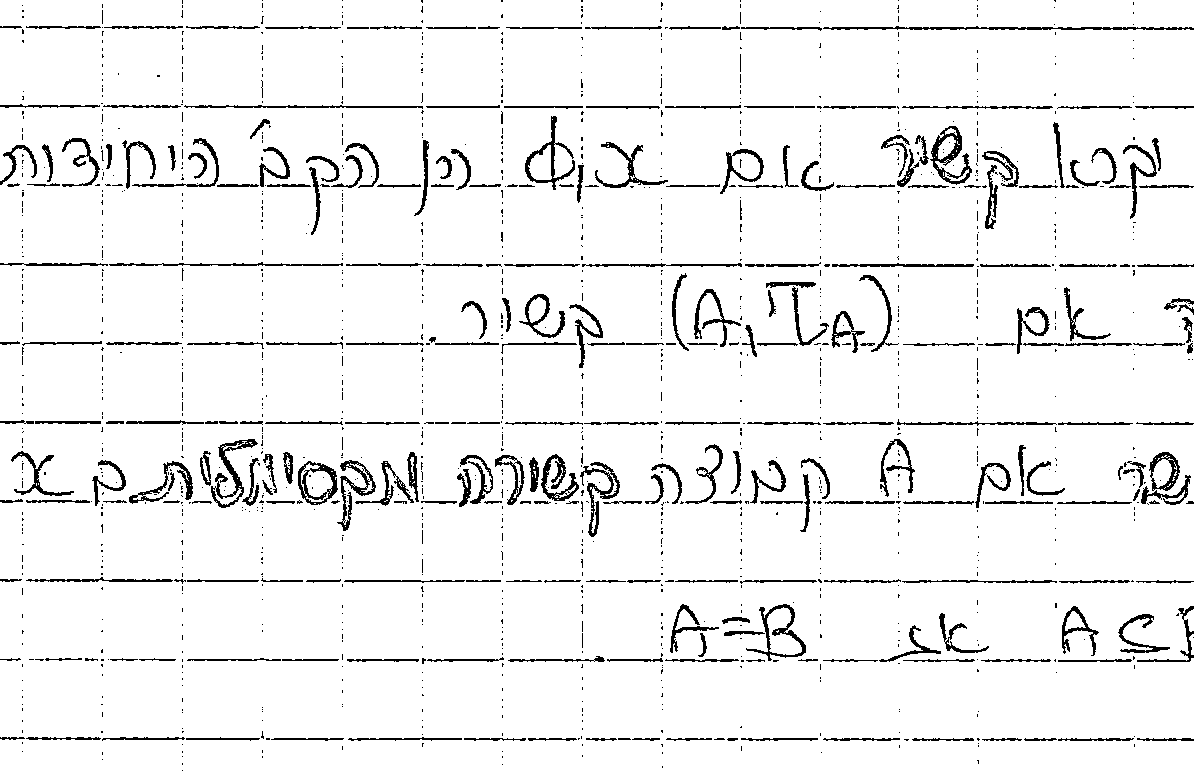 יקרא קשיר אם X,ϕ הן הקב' היחידות
אם (A,τ_A) קשיר.
אם A קבוצה קשירה מקסימלית ב X
A⊆B אז A=B.